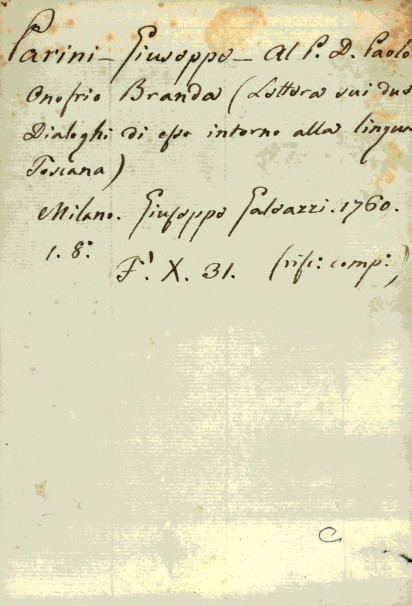 Parini - Giuseppe - Al P. D. Paolo
Onofrio Branda (Lettera sui due
Dialoghi di esso intorno alla lingua
Toscana)
Milano. Giuseppe Galeazzi. 1760.
1. 8°.
F'. X. 31. (risc: comp:)
C